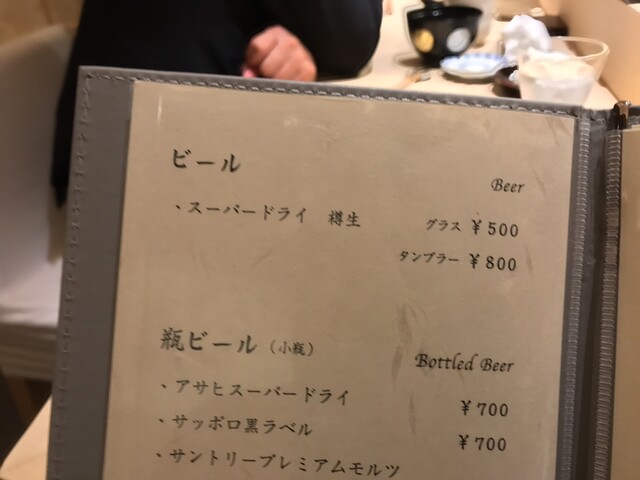 ビール
Beer
・スーパードライ 樽生 グラス ¥500
タンブラー ¥800
瓶ビール (小瓶)
Bottled Beer
・アサヒスーパードライ ¥700
・サッポロ黒ラベル ¥700
・サントリープレミアムモルツ